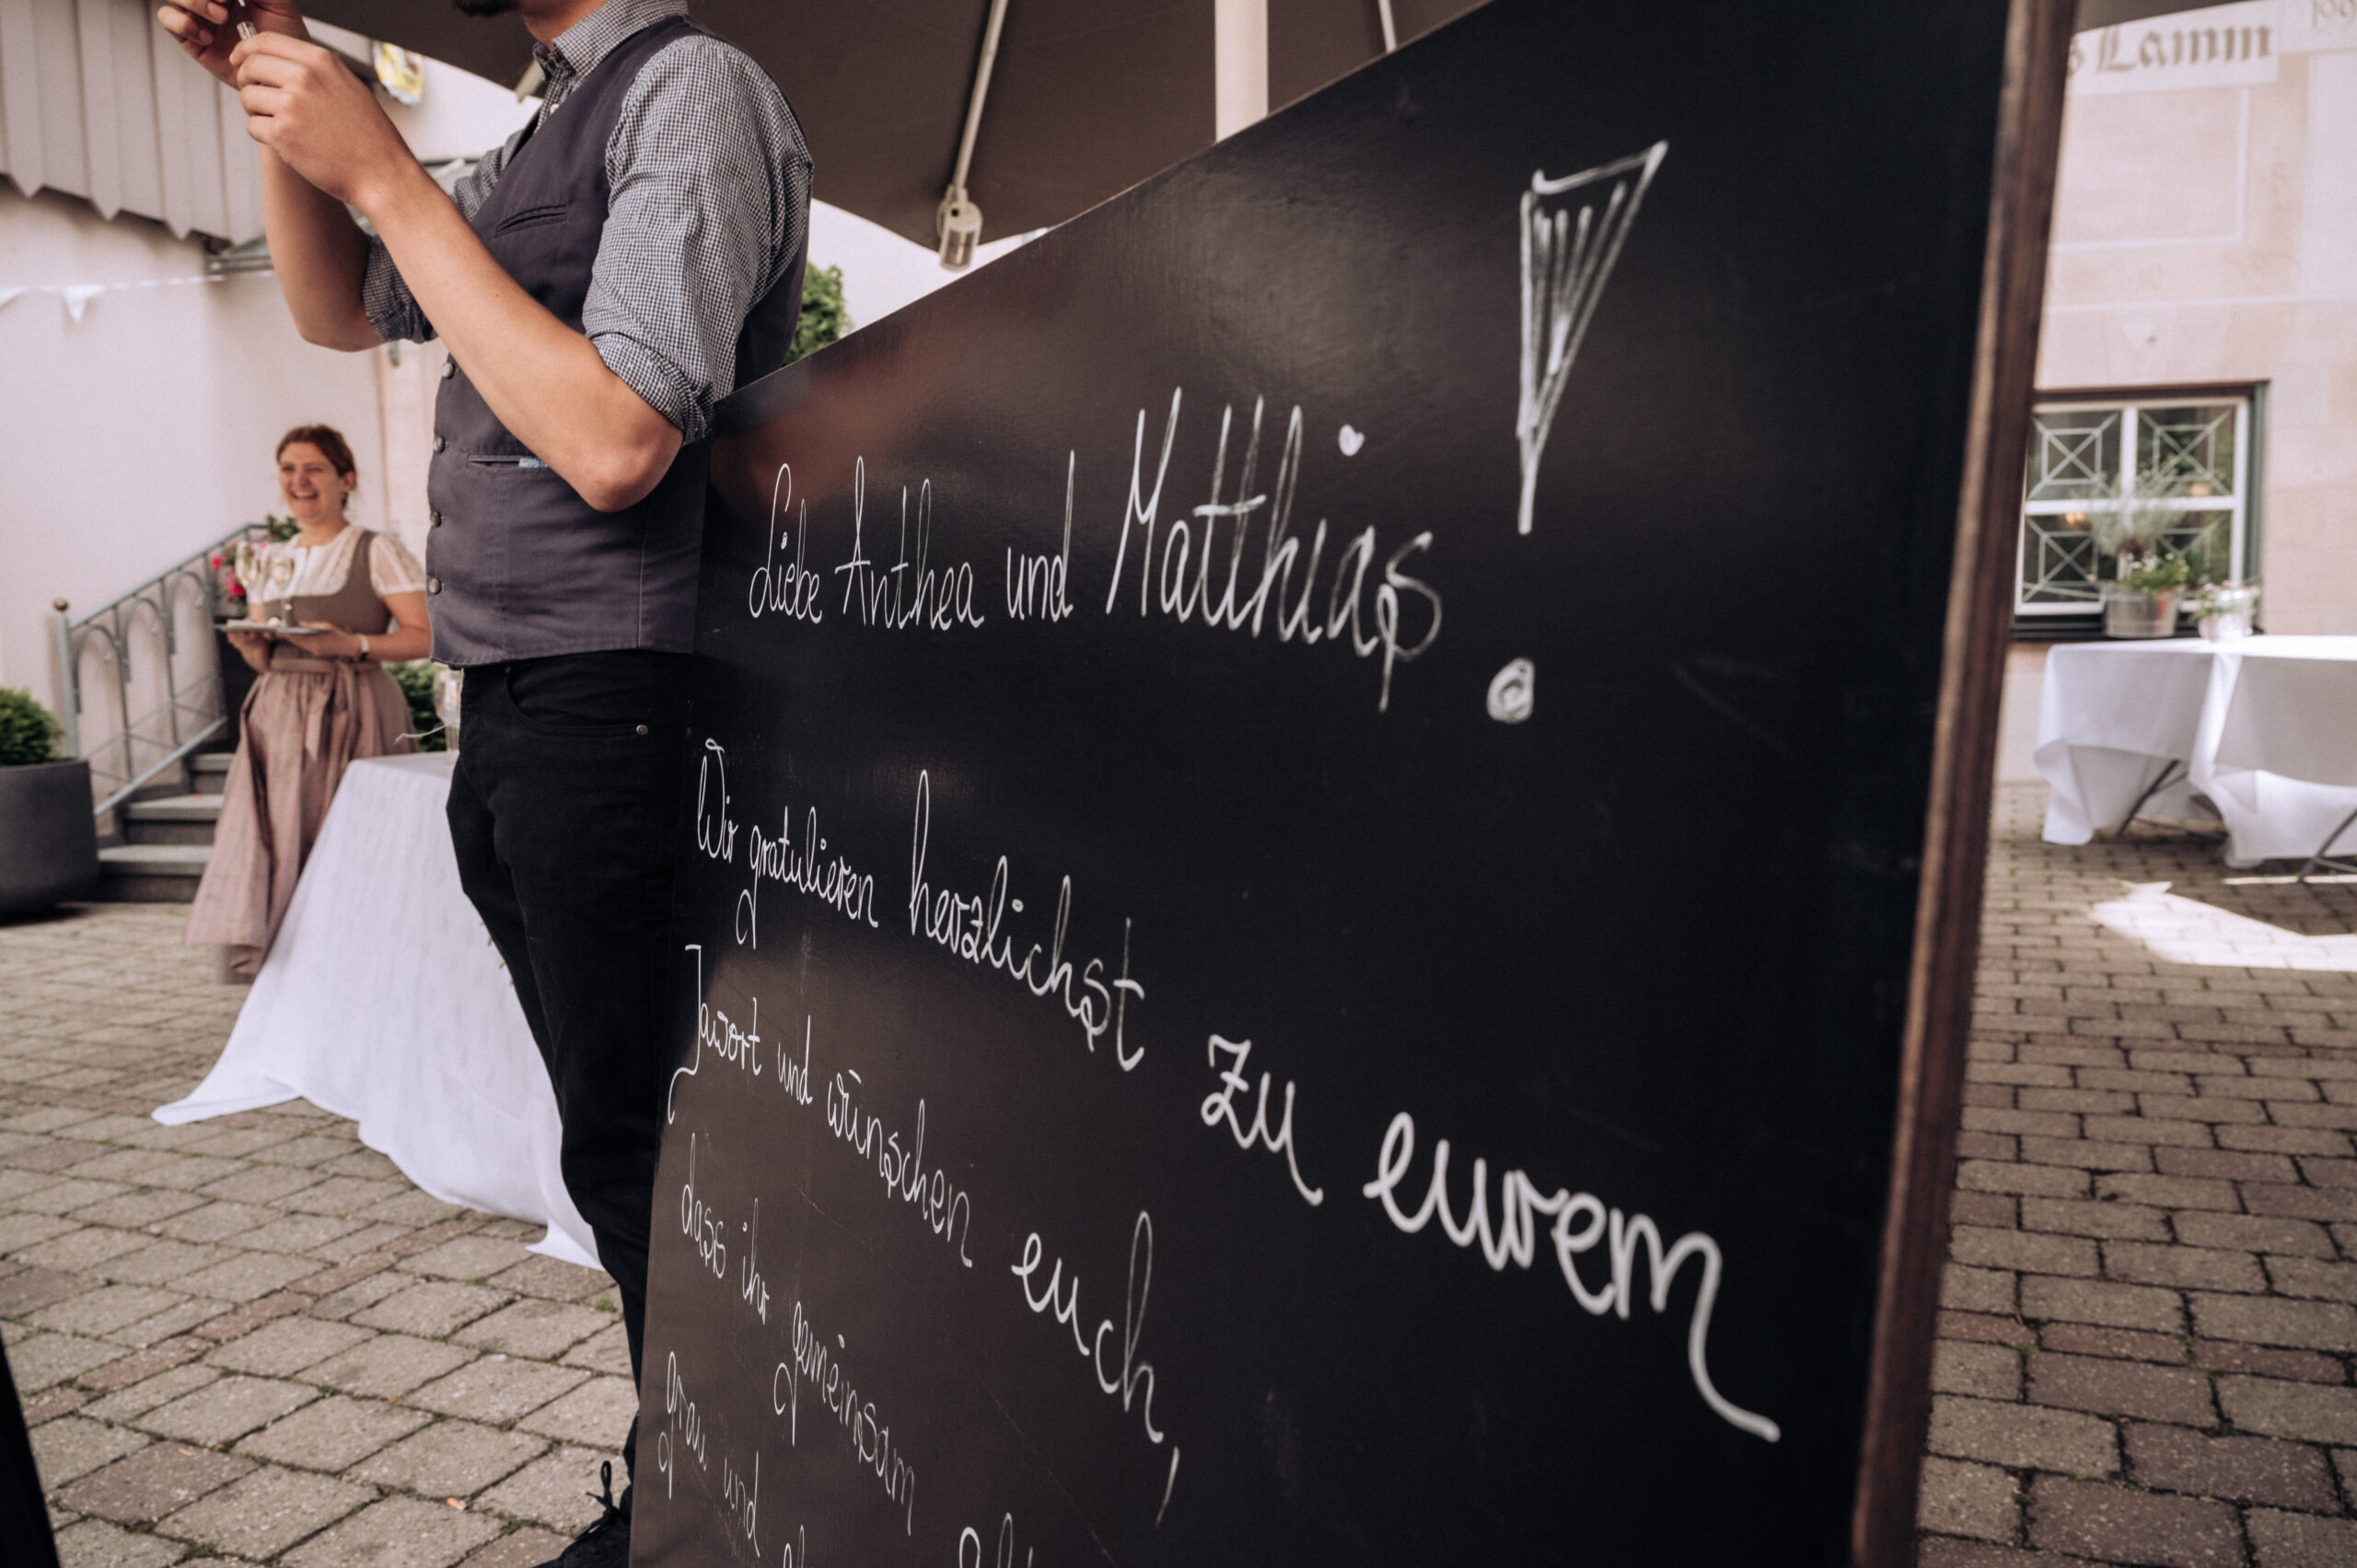 s Lamm
Liebe Anthea und Matthias!
Wir gratulieren herzlichst zu eurem
Jawort und wünschen euch,
dass ihr gemeinsam
grau und